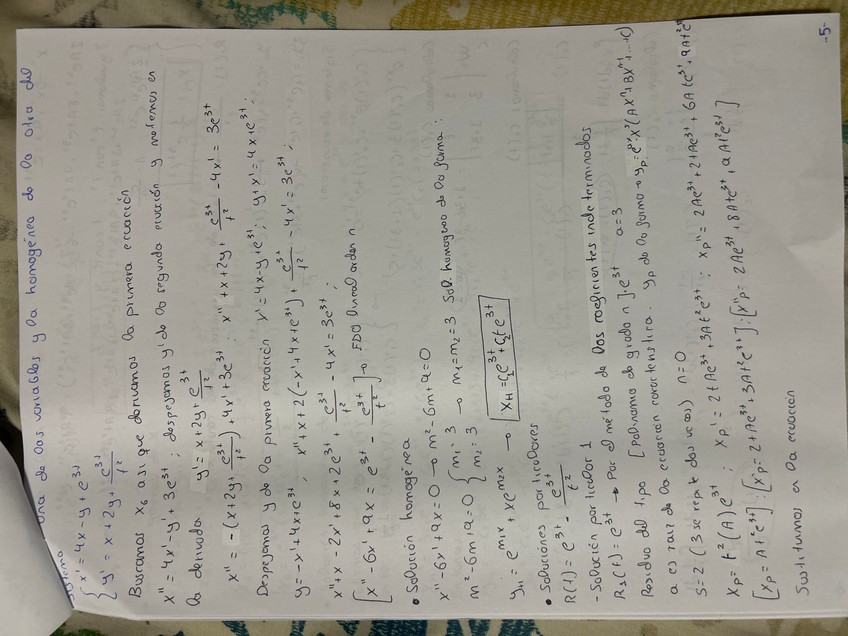 una de las variables y la homogénea de la otra del
{ x' = 4x - y + e^3t
{ y' = x + 2y + e^3t/t^2
Buscamos x_G así que derivamos la primera ecuación
x'' = 4x' - y' + 3e^3t ; despejamos y' de la segunda ecuación y metemos en
la derivada y' = x + 2y + e^3t/t^2
x'' = -(x + 2y + e^3t/t^2) + 4x' + 3e^3t ; x'' + x + 2y + e^3t/t^2 - 4x' = 3e^3t
Despejamos y de la primera ecuación x' = 4x - y + e^3t ; y + x' = 4x + e^3t ;
y = -x' + 4x + e^3t ; x'' + x + 2(-x' + 4x + e^3t) + e^3t/t^2 - 4x' = 3e^3t ;
x'' + x - 2x' + 8x + 2e^3t + e^3t/t^2 - 4x' = 3e^3t ;
[x'' - 6x' + 9x = e^3t - e^3t/t^2] → EDO lineal orden n
• Solución homogénea
x'' - 6x' + 9x = 0 → m^2 - 6m + 9 = 0
m^2 - 6m + 9 = 0 { m1 : 3 → m1 = m2 = 3 Sol. homogenea de la forma :
{ m2 : 3
y_H = e^m1x + xe^m2x → x_H = C1e^3t + C2te^3t
• Soluciones particulares
R(t) = e^3t - e^3t/t^2
- Solución particular 1
R1(t) = e^3t → Por el método de los coeficientes indeterminados
Residuo del tipo [Polinomio de grado n]·e^3t a = 3
a es raiz de la ecuación característica. y_p de la forma → y_p = e^ax·x^s(Ax^n + Bx^n-1 + ... + C)
s = 2 (3 se repite dos veces) n = 0
x_p = t^2(A)e^3t ; x_p' = 2tAe^3t + 3At^2e^3t ; x_p'' = 2Ae^3t + 2tAe^3t + 6Ate^3t + 9At^2e^3t
[x_p = At^2e^3t] ; [x'_p = 2tAe^3t + 3At^2e^3t] ; [x''_p = 2Ae^3t + 8Ate^3t + 9At^2e^3t]
Sustituimos en la ecuación
-5-